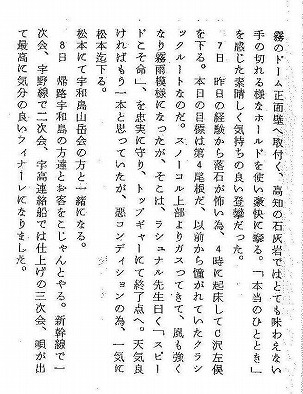 霧のドーム正面壁へ取付く、高知の石灰岩ではとても味わえない
手の切れる様なホールドを使い豪快に攀る。「本当のひととき」
を感じた素晴しく気持ちの良い登攀だった。
7日　昨日の経験から落石が怖い為、4時に起床してC沢左俣
を下る。本日の目標は第4尾根だ、以前から憧がれていたクラシ
ックルートなのだ。スノーコル上部よりガスつてきて、風も強く
なり霧雨模様になったが、そこは、ラシュナル先生曰く「スピー
ドこそ命」、を忠実に守り、トップギャーにて終了点へ。天気良
ければもう一本と思っていたが、悪コンディションの為、一気に
松本迄下る。
松本にて宇和島山岳会の方と一緒になる。
8日　帰路宇和島の方達とお客をこじゃんとやる。新幹線で一
次会、宇野線で二次会、宇高連絡船では仕上げの三次会、唄が出
て最高に気分の良いフィナーレになりました。